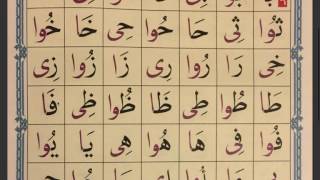 ثُوا ثِى حَا حُوا حِى خَا خُوا
خِى رَا رُوا رِى زَا زُوا زِى
طَا طُوا طِى ظَا ظُوا ظِى فَا
فُوا فِى هَا هُوا هِى يَا يُوا